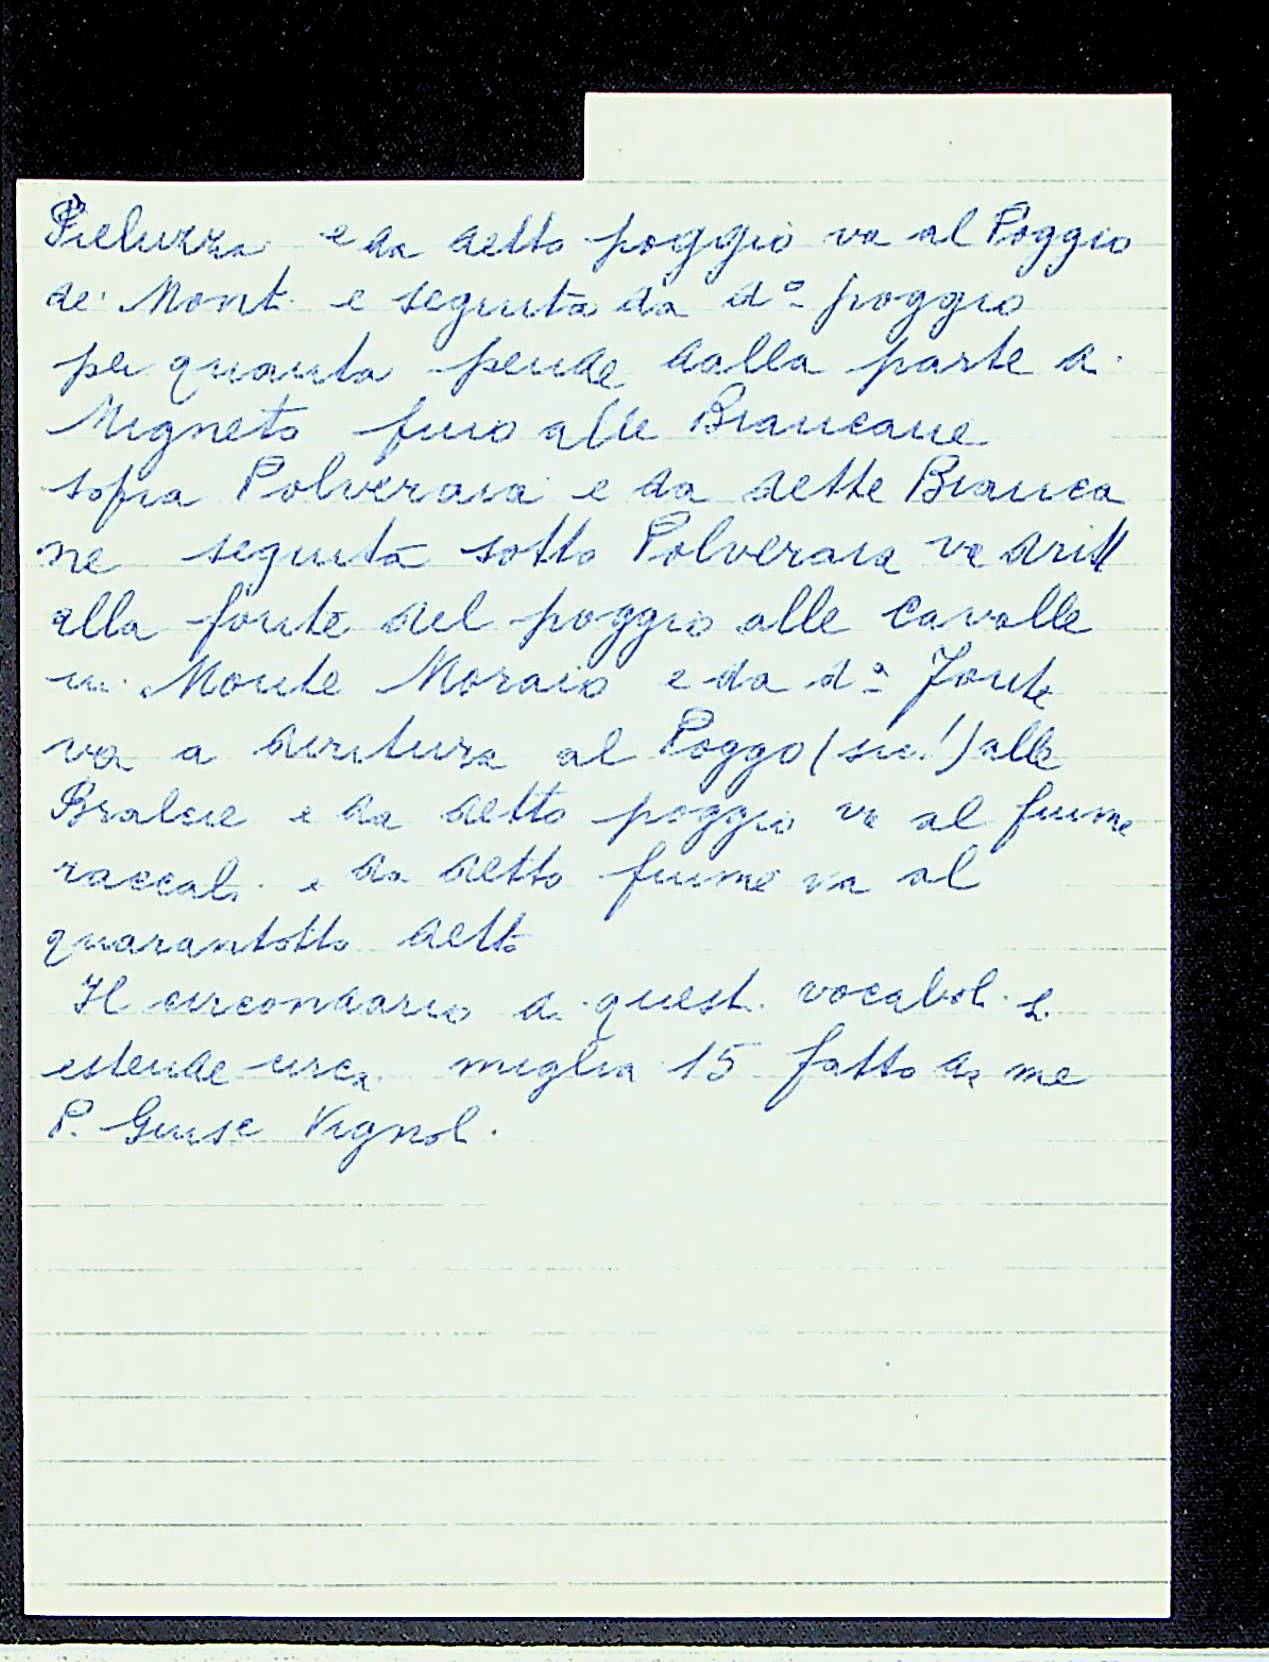 Pieluzza e da detto poggio va al Poggio
de' Mont. e seguita da d° poggio
per quanto pende dalla parte di
Migneto fino alle Biancane
sopra Polveraia e da dette Bianca
ne seguita sotto Polveraia va dritt
alla fonte del poggio alle cavalle
in Monte Moraio e da d.ª Fonte
va a diritura al Poggo (sic!) alle
Bralcie e da detto poggio va al fiume
raccal. e da detto fiume va al
quarantotto detto
Il circondario di quest. vocabol. si
estende circa miglia 15 fatto da me
P. Giuse Vignol.